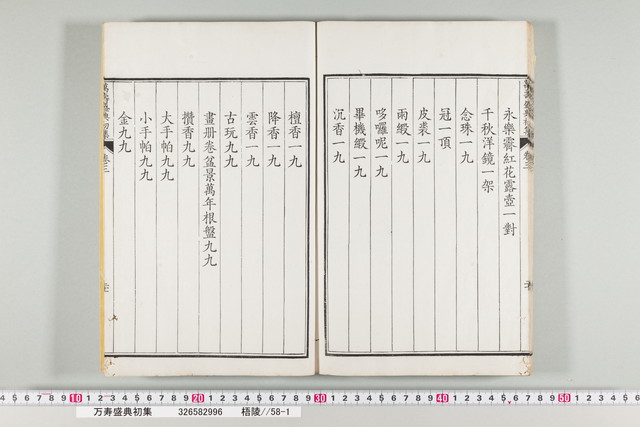 永樂霽紅花露壺一對
千秋洋鏡一架
念珠一九
冠一頂
皮裘一九
雨緞一九
哆囉呢一九
畢機緞一九
沉香一九
檀香一九
降香一九
雲香一九
古玩九九
畫册卷盆景萬年根盤九九
攢香九九
大手帕九九
小手帕九九
金九九
卷三
10 20 30 40 50
万寿盛典初集 326582996 梧陵//58-1